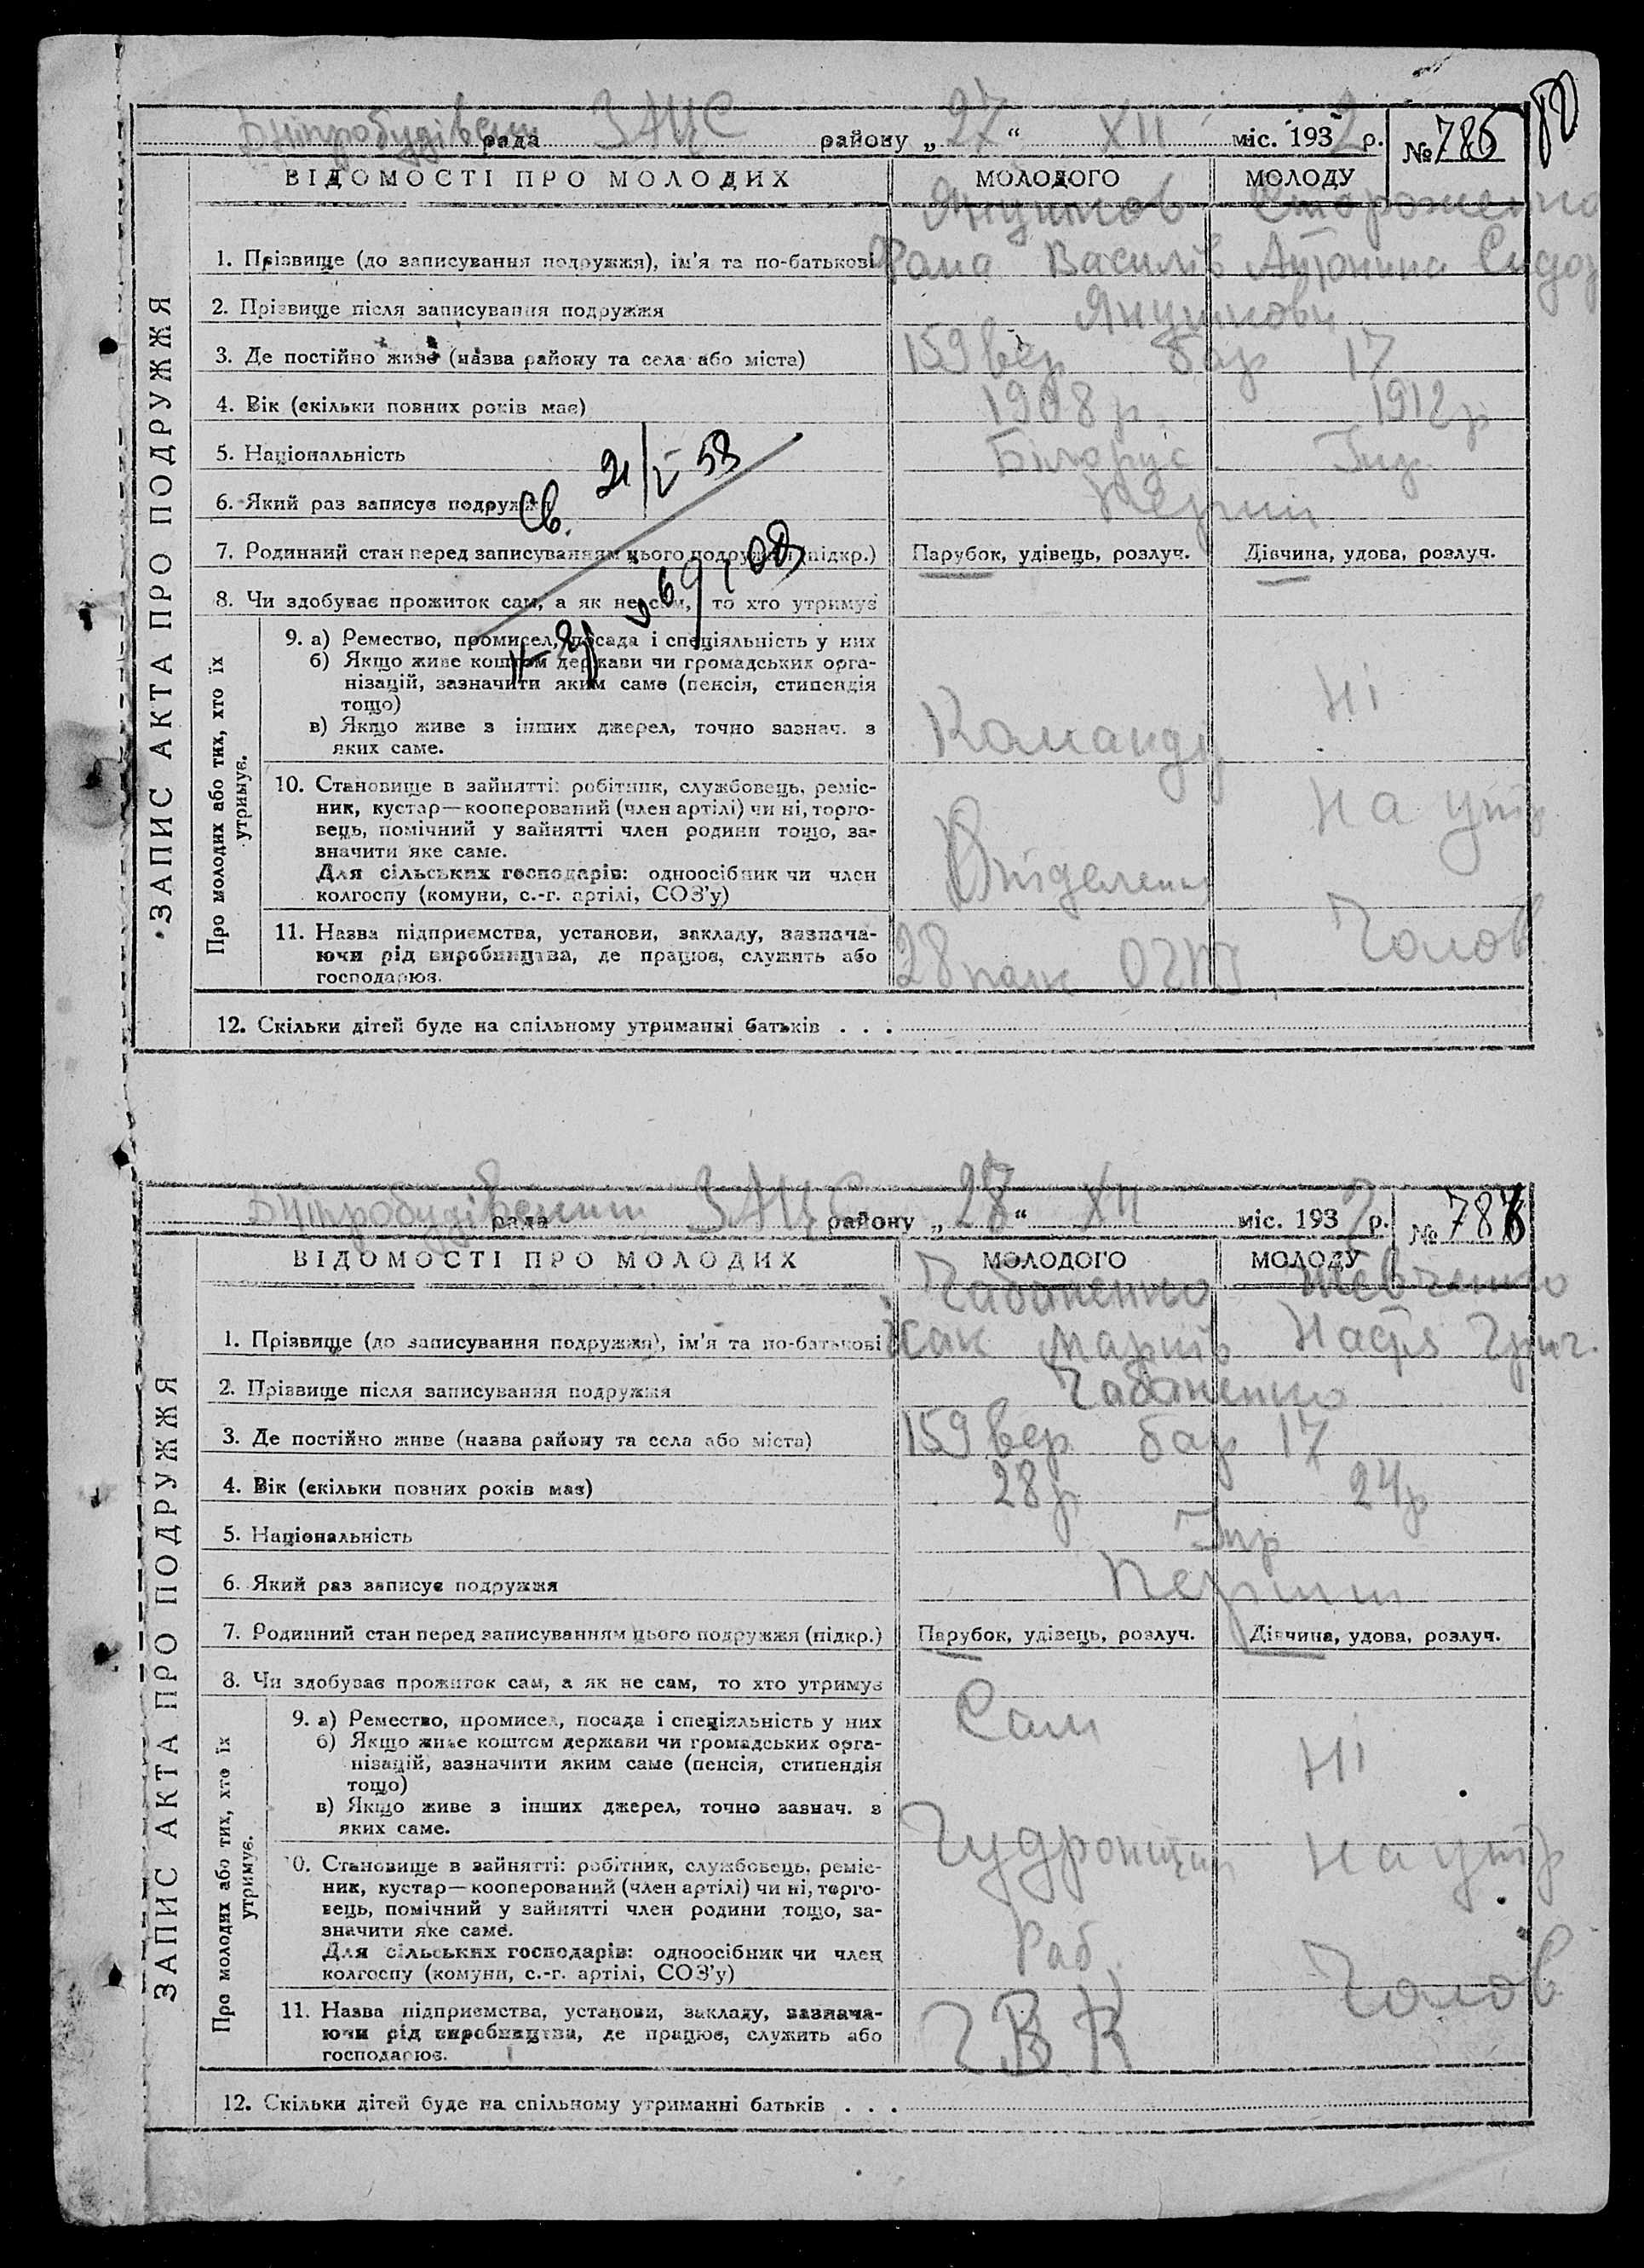 80
Дніпробудівський рада ЗАЦС району „27“ XII міс. 1932 р. № 786
ВІДОМОСТІ ПРО МОЛОДИХ МОЛОДОГО МОЛОДУ
Стороженко
1. Прізвище (до записування подружжя), ім'я та по-батькові Фома Василів Антонина Сидор
2. Прізвище після записування подружжя
3. Де постійно живе (назва району та села або міста) 159 вер бар 17
4. Вік (скільки повних років має) 1908 р 1912 р
5. Національність Білорус Укр
6. Який раз записує подружжя Перший
Св. 21/V-58
7. Родинний стан перед записуванням цього подружжя (підкр.) Парубок, удівець, розлуч. Дівчина, удова, розлуч.
8. Чи здобуває прожиток сам, а як не сам, то хто утримує
ЗАПИС АКТА ПРО ПОДРУЖЖЯ
Про молодих або тих, хто їх утримує.
9. а) Ремество, промисел, посада і спеціяльність у них
б) Якщо живе коштом держави чи громадських орга-
нізацій, зазначити яким саме (пенсія, стипендія
тощо)
в) Якщо живе з інших джерел, точно зазнач. з
яких саме.
Команди Ні
10. Становище в зайнятті: робітник, службовець, реміс-
ник, кустар—кооперований (член артілі) чи ні, торго-
вець, помічний у зайнятті член родини тощо, за-
значити яке саме.
Для сільських господарів: одноосібник чи член
колгоспу (комуни, с.-г. артілі, СОЗ'у)
На утр
11. Назва підприємства, установи, закладу, зазнача-
ючи рід виробництва, де працює, служить або
господарює.
28 полк Чолов
12. Скільки дітей буде на спільному утриманні батьків . . .
Дніпробудівський рада ЗАЦС району „28“ XII міс. 1932 р. № 787
ВІДОМОСТІ ПРО МОЛОДИХ МОЛОДОГО МОЛОДУ
Чабаненко Шевченко
1. Прізвище (до записування подружжя), ім'я та по-батькові Ісак Марків Настя Григ.
2. Прізвище після записування подружжя Чабаненко
3. Де постійно живе (назва району та села або міста) 159 вер бар 17
4. Вік (скільки повних років має) 28 р 24 р
5. Національність Укр
6. Який раз записує подружжя Перший
7. Родинний стан перед записуванням цього подружжя (підкр.) Парубок, удівець, розлуч. Дівчина, удова, розлуч.
8. Чи здобуває прожиток сам, а як не сам, то хто утримує
Сам
ЗАПИС АКТА ПРО ПОДРУЖЖЯ
Про молодих або тих, хто їх утримує.
9. а) Ремество, промисел, посада і спеціяльність у них
б) Якщо живе коштом держави чи громадських орга-
нізацій, зазначити яким саме (пенсія, стипендія
тощо)
в) Якщо живе з інших джерел, точно зазнач. з
яких саме.
Ні
10. Становище в зайнятті: робітник, службовець, реміс-
ник, кустар—кооперований (член артілі) чи ні, торго-
вець, помічний у зайнятті член родини тощо, за-
значити яке саме.
Для сільських господарів: одноосібник чи член
колгоспу (комуни, с.-г. артілі, СОЗ'у)
Гудронщик На утр
Раб.
11. Назва підприємства, установи, закладу, зазнача-
ючи рід виробництва, де працює, служить або
господарює.
ГВК Чолов
12. Скільки дітей буде на спільному утриманні батьків . . .